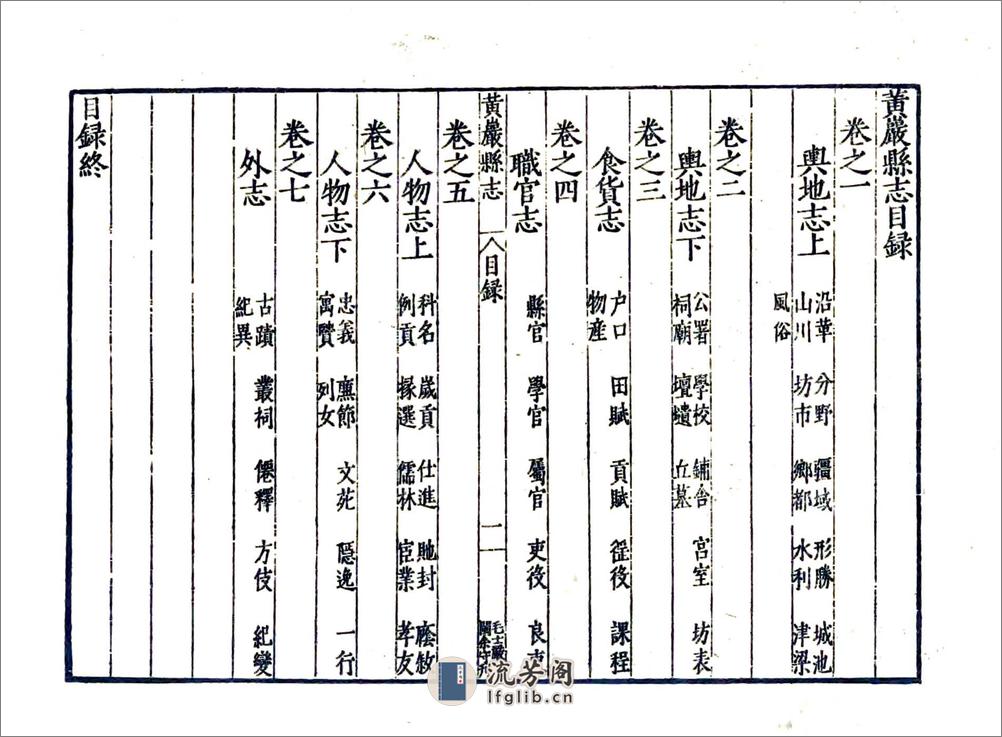 黃巖縣志目録
卷之一
輿地志上
沿革 分野 疆域 形勝 城池
山川 坊市 鄉都 水利 津梁
風俗
卷之二
輿地志下
公署 學校 鋪舍 宮室 坊表
祠廟 壇壝 丘墓
卷之三
食貨志
户口 田賦 貢賦 徭役 課程
物産
卷之四
職官志
縣官 學官 屬官 吏役 良吏
黃巖縣志 目録 二
卷之五
人物志上
科名 歲貢 仕進 貤封 廕敘
例貢 掾選 儒林 宦業 孝友
卷之六
人物志下
忠義 廉節 文苑 隱逸 一行
寓賢 列女
卷之七
外志
古蹟 叢祠 僊釋 方伎 紀變
紀異
目録終
流芳阁
lfglib.cn